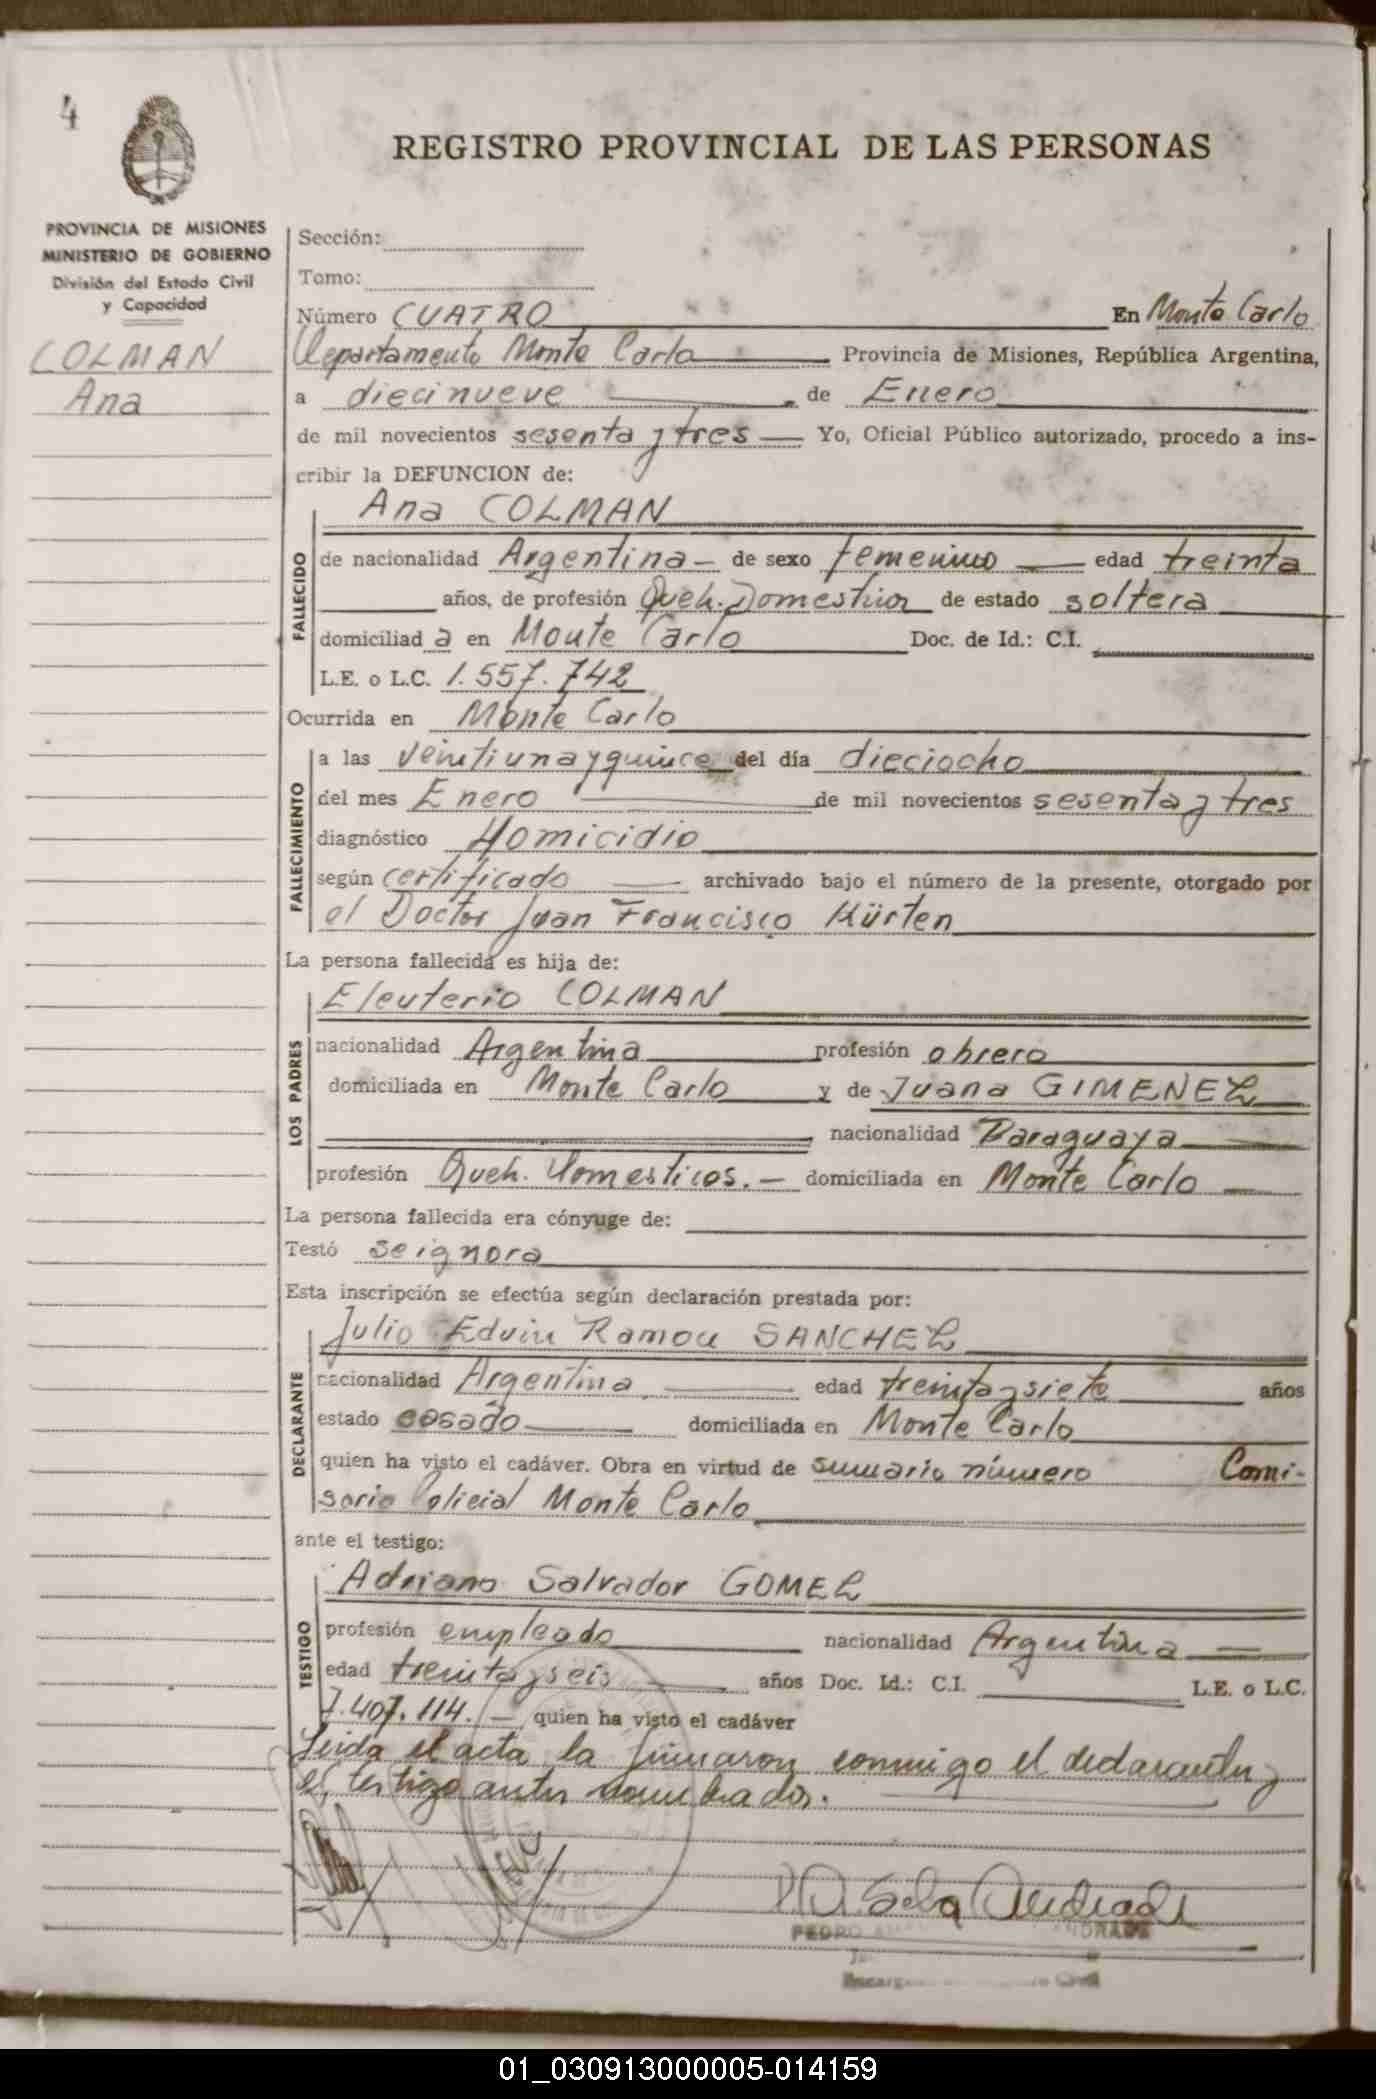 4
REGISTRO PROVINCIAL DE LAS PERSONAS
PROVINCIA DE MISIONES
MINISTERIO DE GOBIERNO
División del Estado Civil
y Capacidad
COLMAN
Ana
Sección:
Tomo:
Número CUATRO En Monte Carlo
Departamento Monte Carlo Provincia de Misiones, República Argentina,
a diecinueve de Enero
de mil novecientos sesenta y tres Yo, Oficial Público autorizado, procedo a ins-
cribir la DEFUNCION de:
Ana COLMAN
FALLECIDO
de nacionalidad Argentina - de sexo femenino edad treinta
años, de profesión Queh. Domestica de estado soltera
domiciliad a en Monte Carlo Doc. de Id.: C.I.
L.E. o L.C. 1.557.742
Ocurrida en Monte Carlo
FALLECIMIENTO
a las veintiuna y quince del día dieciocho
del mes Enero de mil novecientos sesenta y tres
diagnóstico Homicidio
según certificado archivado bajo el número de la presente, otorgado por
el Doctor Juan Francisco Kürten
La persona fallecida es hija de:
LOS PADRES
Eleuterio COLMAN
nacionalidad Argentina profesión obrero
domiciliada en Monte Carlo y de Juana GIMENEZ
nacionalidad Paraguaya
profesión Queh. Domesticos. - domiciliada en Monte Carlo
La persona fallecida era cónyuge de:
Testó se ignora
Esta inscripción se efectúa según declaración prestada por:
DECLARANTE
Julio Edvin Ramon SANCHEZ
nacionalidad Argentina edad treinta y siete años
estado casado domiciliada en Monte Carlo
quien ha visto el cadáver. Obra en virtud de sumario número Comi-
saria Policial Monte Carlo
ante el testigo:
TESTIGO
Adriano Salvador GOMEZ
profesión empleado nacionalidad Argentina
edad treinta y seis años Doc. Id.: C.I. L.E. o L.C.
7.407.114. - quien ha visto el cadáver
Leida el acta la firmaron conmigo el declarante y
el testigo antes nombrados.
PEDRO
01_030913000005-014159